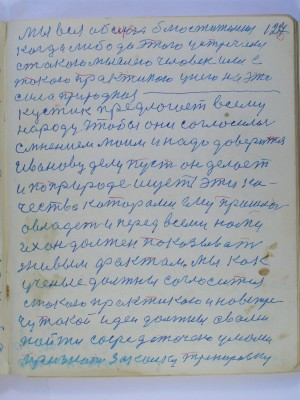 мы вся общая блюстителния 127
когда либо до этого устречали
стаково мыслего человек или с
такого практикаго учёнаго это
сила природная
Кустик предлогает всему
народу чтобы они согласились
смнением моим и надо доверится
Иванову делу пуст он делает
и поприроде ищет эти ка-
чества каторами ему пришлос
овладет и перед всеми нами
их он должен показыват
живым фрактам. мы как
ученые должны согласится
с такого практикаго и новаще
чу такой идеи должны овами
найти сосредоточено умами
признат закалку тренировку